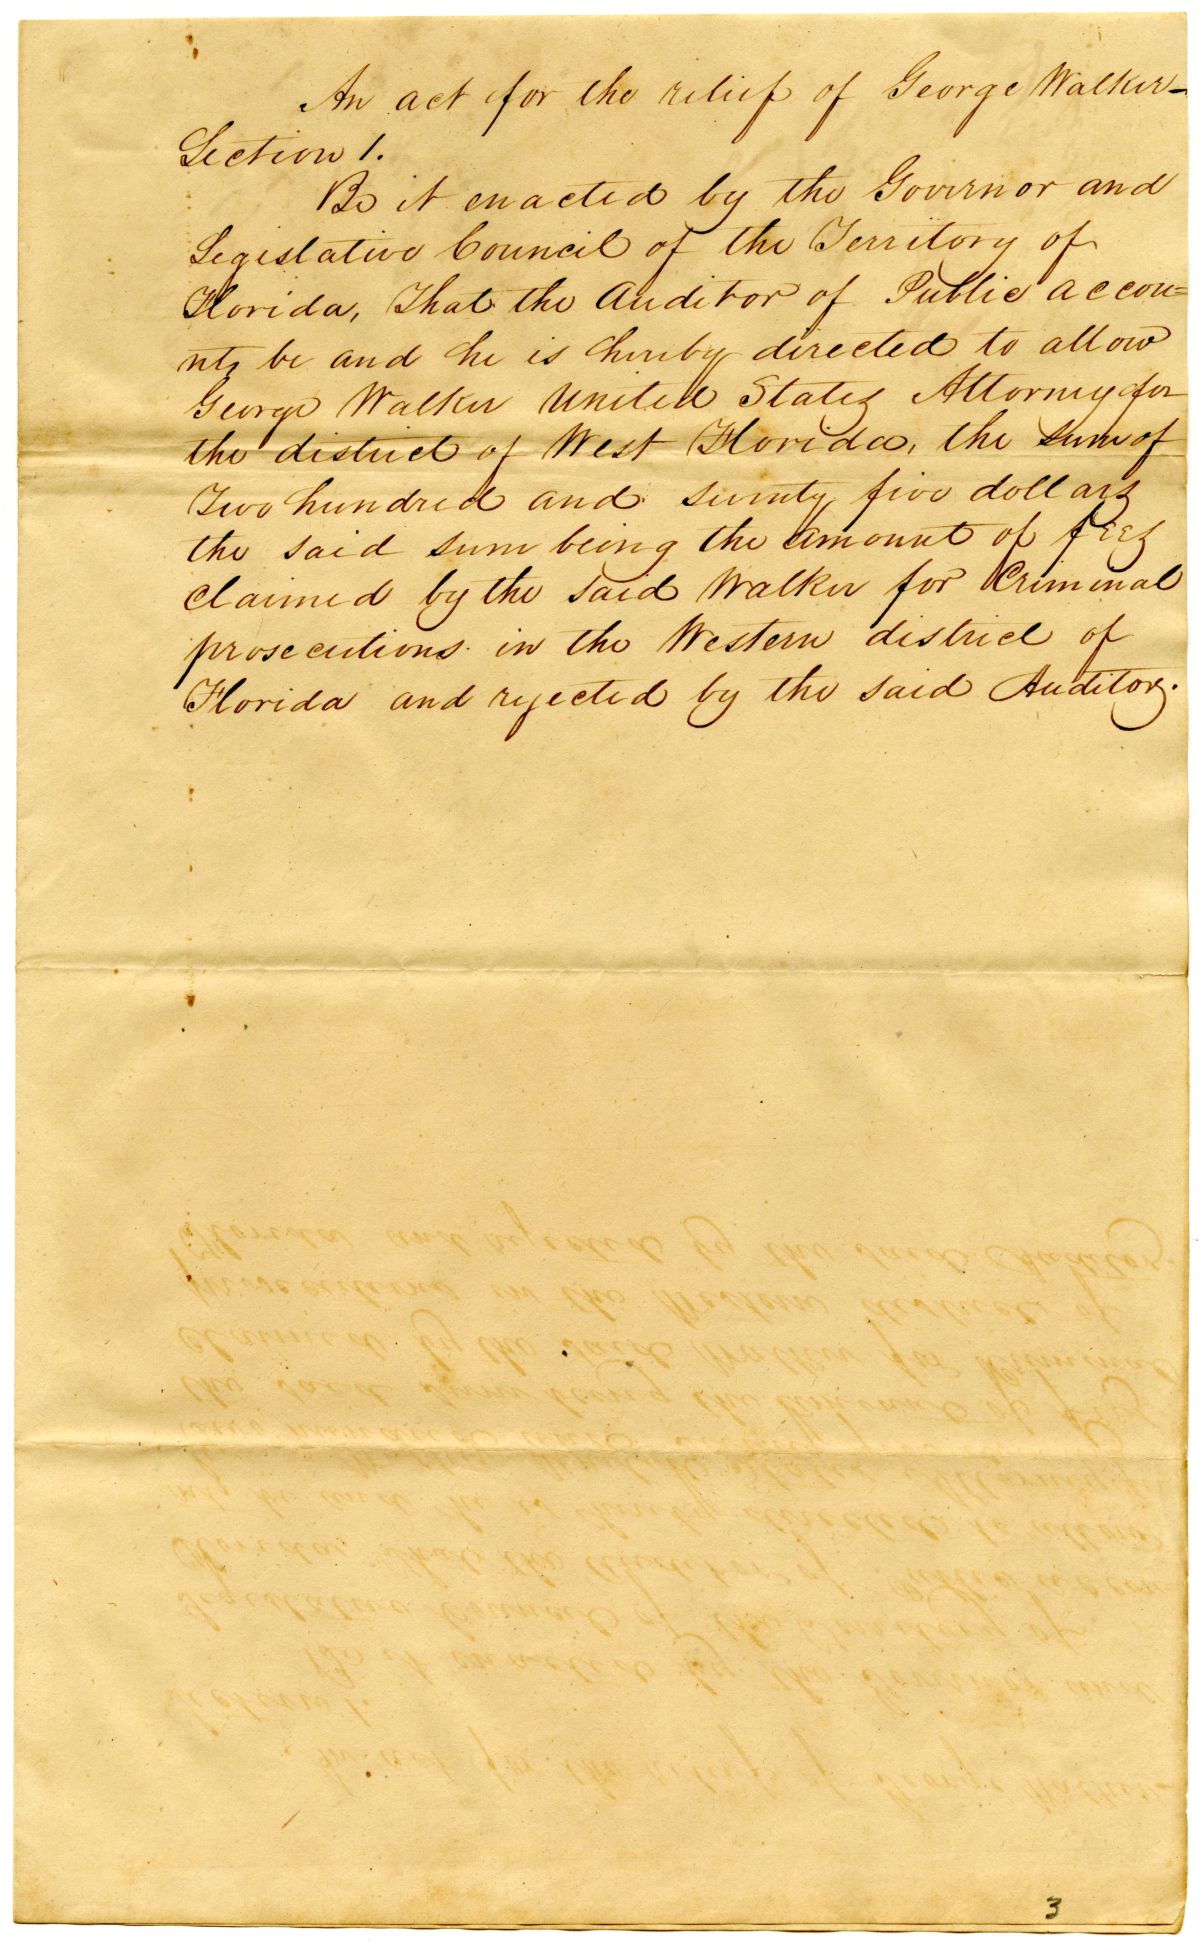 An act for the relief of George Walker—
Section 1.
Be it enacted by the Governor and
Legislative Council of the Territory of
Florida, That the Auditor of Public accou=
nts be and he is hereby directed to allow
George Walker United States Attorney for
the district of West Florida, the sum of
Two hundred and seventy five dollars
the said sum being the amount of fees
claimed by the said Walker for Criminal
prosecutions in the Western district of
Florida and rejected by the said Auditor.
3